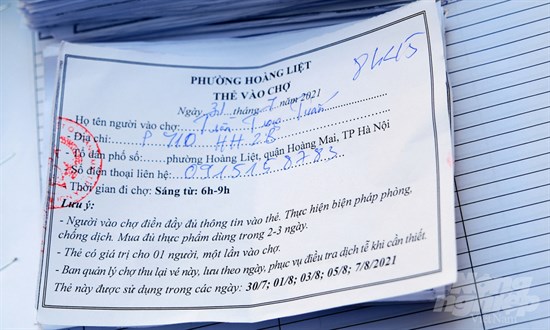 PHƯỜNG HOÀNG LIỆT
THẺ VÀO CHỢ
8h45
Ngày 31 tháng 7 năm 2021
- Họ tên người vào chợ: Trần Trọng Tuấn
- Địa chỉ: P 110 HH 2B
- Tổ dân phố số: phường Hoàng Liệt, quận Hoàng Mai, TP Hà Nội
- Số điện thoại liên hệ: 0915198785
- Thời gian đi chợ: Sáng từ: 6h-9h
Lưu ý:
- Người vào chợ điền đầy đủ thông tin vào thẻ. Thực hiện biện pháp phòng,
chống dịch. Mua đủ thực phẩm dùng trong 2-3 ngày.
- Thẻ có giá trị cho 01 người, một lần vào chợ.
- Ban quản lý chợ thu lại vé này, lưu theo ngày, phục vụ điều tra dịch tễ khi cần thiết.
Thẻ này được sử dụng trong các ngày: 30/7; 01/8; 03/8; 05/8; 7/8/2021